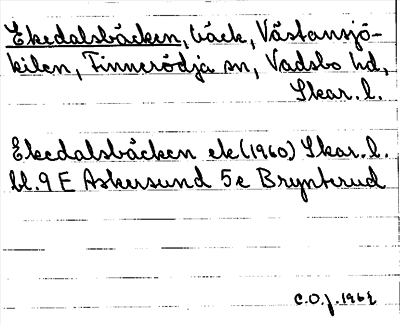 Ekedalsbäcken, bäck, Västansjö-
kilen, Finnerödja sn, Vadsbo hd,
Skar. l.
Ekedalsbäcken ek (1960) Skar. l.
bl. 9 E Askersund 5e Brynterud
C.O.J. 1962